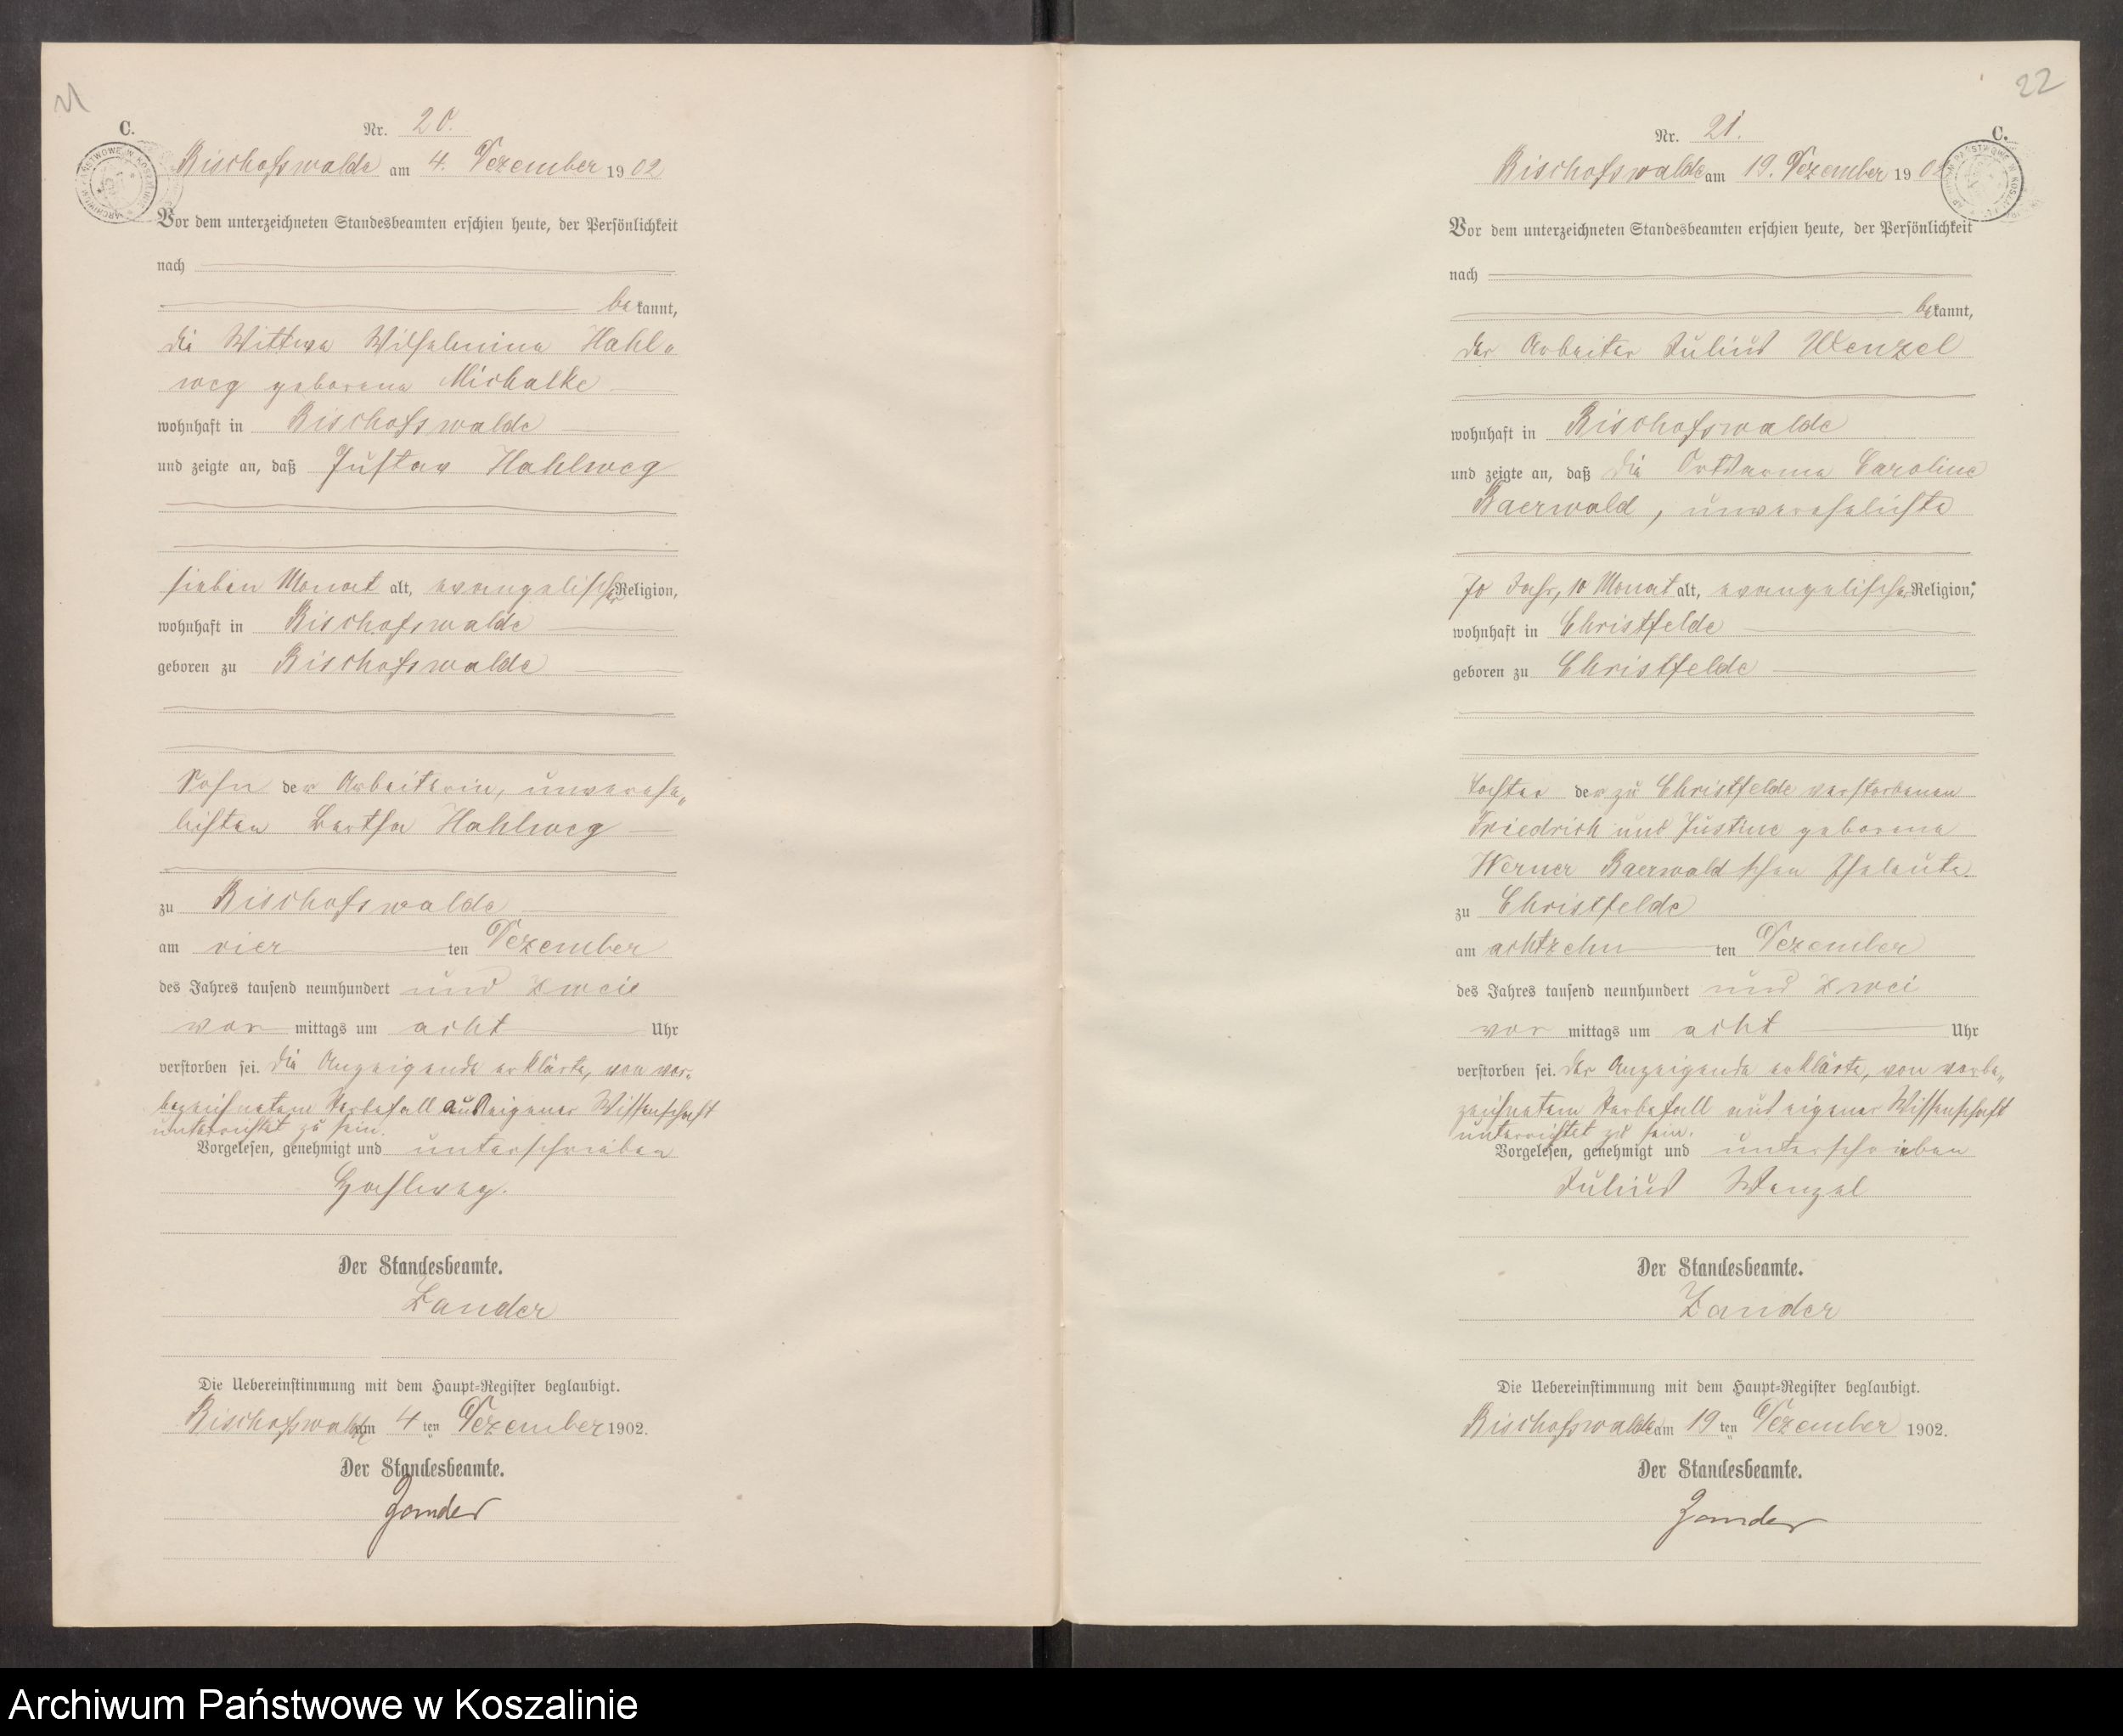 C.
Nr. 20.
Bischofswalde am 4. Dezember 1902
Vor dem unterzeichneten Standesbeamten erschien heute, der Persönlichkeit
nach
bekannt,
die Wittwe Wilhelmine Hahl-
weg geborene Michalke
wohnhaft in Bischofswalde
und zeigte an, daß Gustav Hahlweg
sieben Monat alt, evangelischer Religion,
wohnhaft in Bischofswalde
geboren zu Bischofswalde
Sohn der Arbeiterin, unverehe-
lichten Bertha Hahlweg
zu Bischofswalde
am vier ten Dezember
des Jahres tausend neunhundert und zwei
vor mittags um acht Uhr
verstorben sei. Die Anzeigende erklärte, von vor-
bezeichnetem Sterbefall aus eigener Wissenschaft
unterrichtet zu sein.
Vorgelesen, genehmigt und unterschrieben
Hahlweg.
Der Standesbeamte.
Zander
Die Uebereinstimmung mit dem Haupt-Register beglaubigt.
Bischofswalde am 4 ten Dezember 1902.
Der Standesbeamte.
Zander
22
C.
Nr. 21.
Bischofswalde am 19. Dezember 1902
Vor dem unterzeichneten Standesbeamten erschien heute, der Persönlichkeit
nach
bekannt,
der Arbeiter Julius Wenzel
wohnhaft in Bischofswalde
und zeigte an, daß die Ortsarme Caroline
Baerwald, unverehelichte
70 Jahr, 10 Monat alt, evangelischer Religion,
wohnhaft in Christfelde
geboren zu Christfelde
Tochter der zu Christfelde verstorbenen
Friedrich und Justine geborene
Werner Baerwald'schen Eheleute
zu Christfelde
am achtzehn ten Dezember
des Jahres tausend neunhundert und zwei
vor mittags um acht Uhr
verstorben sei. Der Anzeigende erklärte, von vorbe-
zeichnetem Sterbefall aus eigener Wissenschaft
unterrichtet zu sein.
Vorgelesen, genehmigt und unterschrieben
Julius Wenzel
Der Standesbeamte.
Zander
Die Uebereinstimmung mit dem Haupt-Register beglaubigt.
Bischofswalde am 19 ten Dezember 1902.
Der Standesbeamte.
Zander
Archiwum Państwowe w Koszalinie